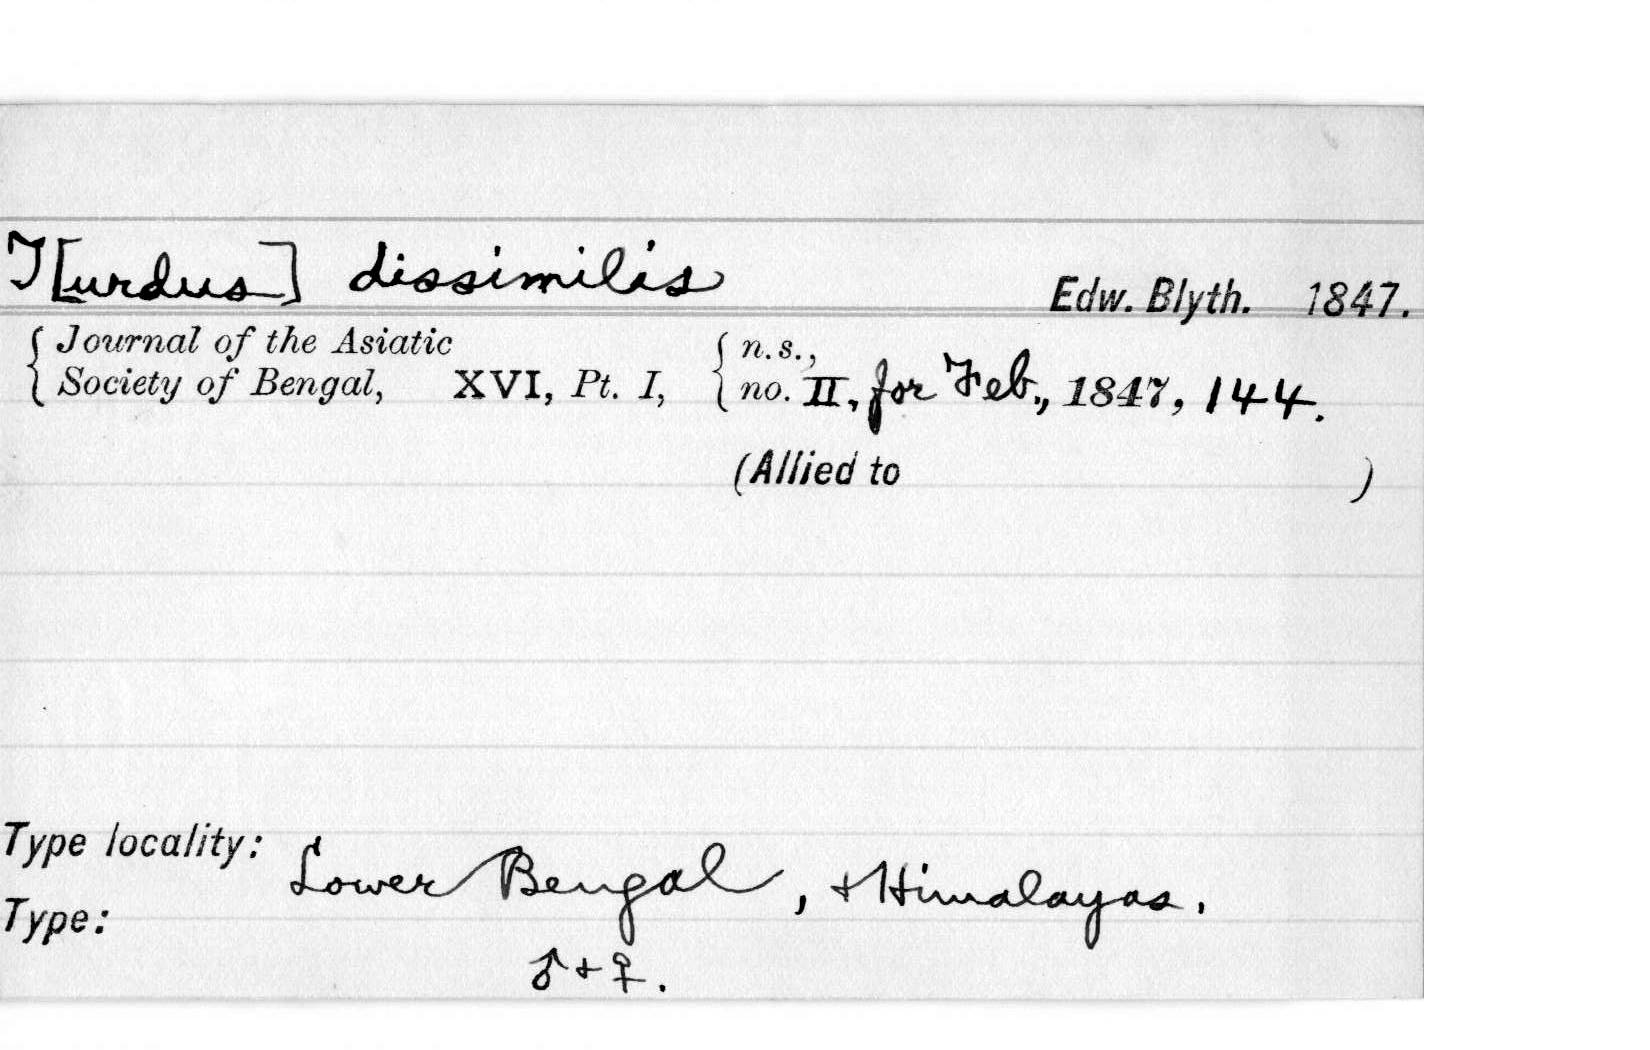 T[urdus] dissimilis Edw. Blyth. 1847.
{ Journal of the Asiatic { n.s.,
{ Society of Bengal, XVI, Pt. I, { no. II, for Feb., 1847, 144.
(Allied to )
Type locality: Lower Bengal, + Himalayas.
Type:
♂ + ♀.